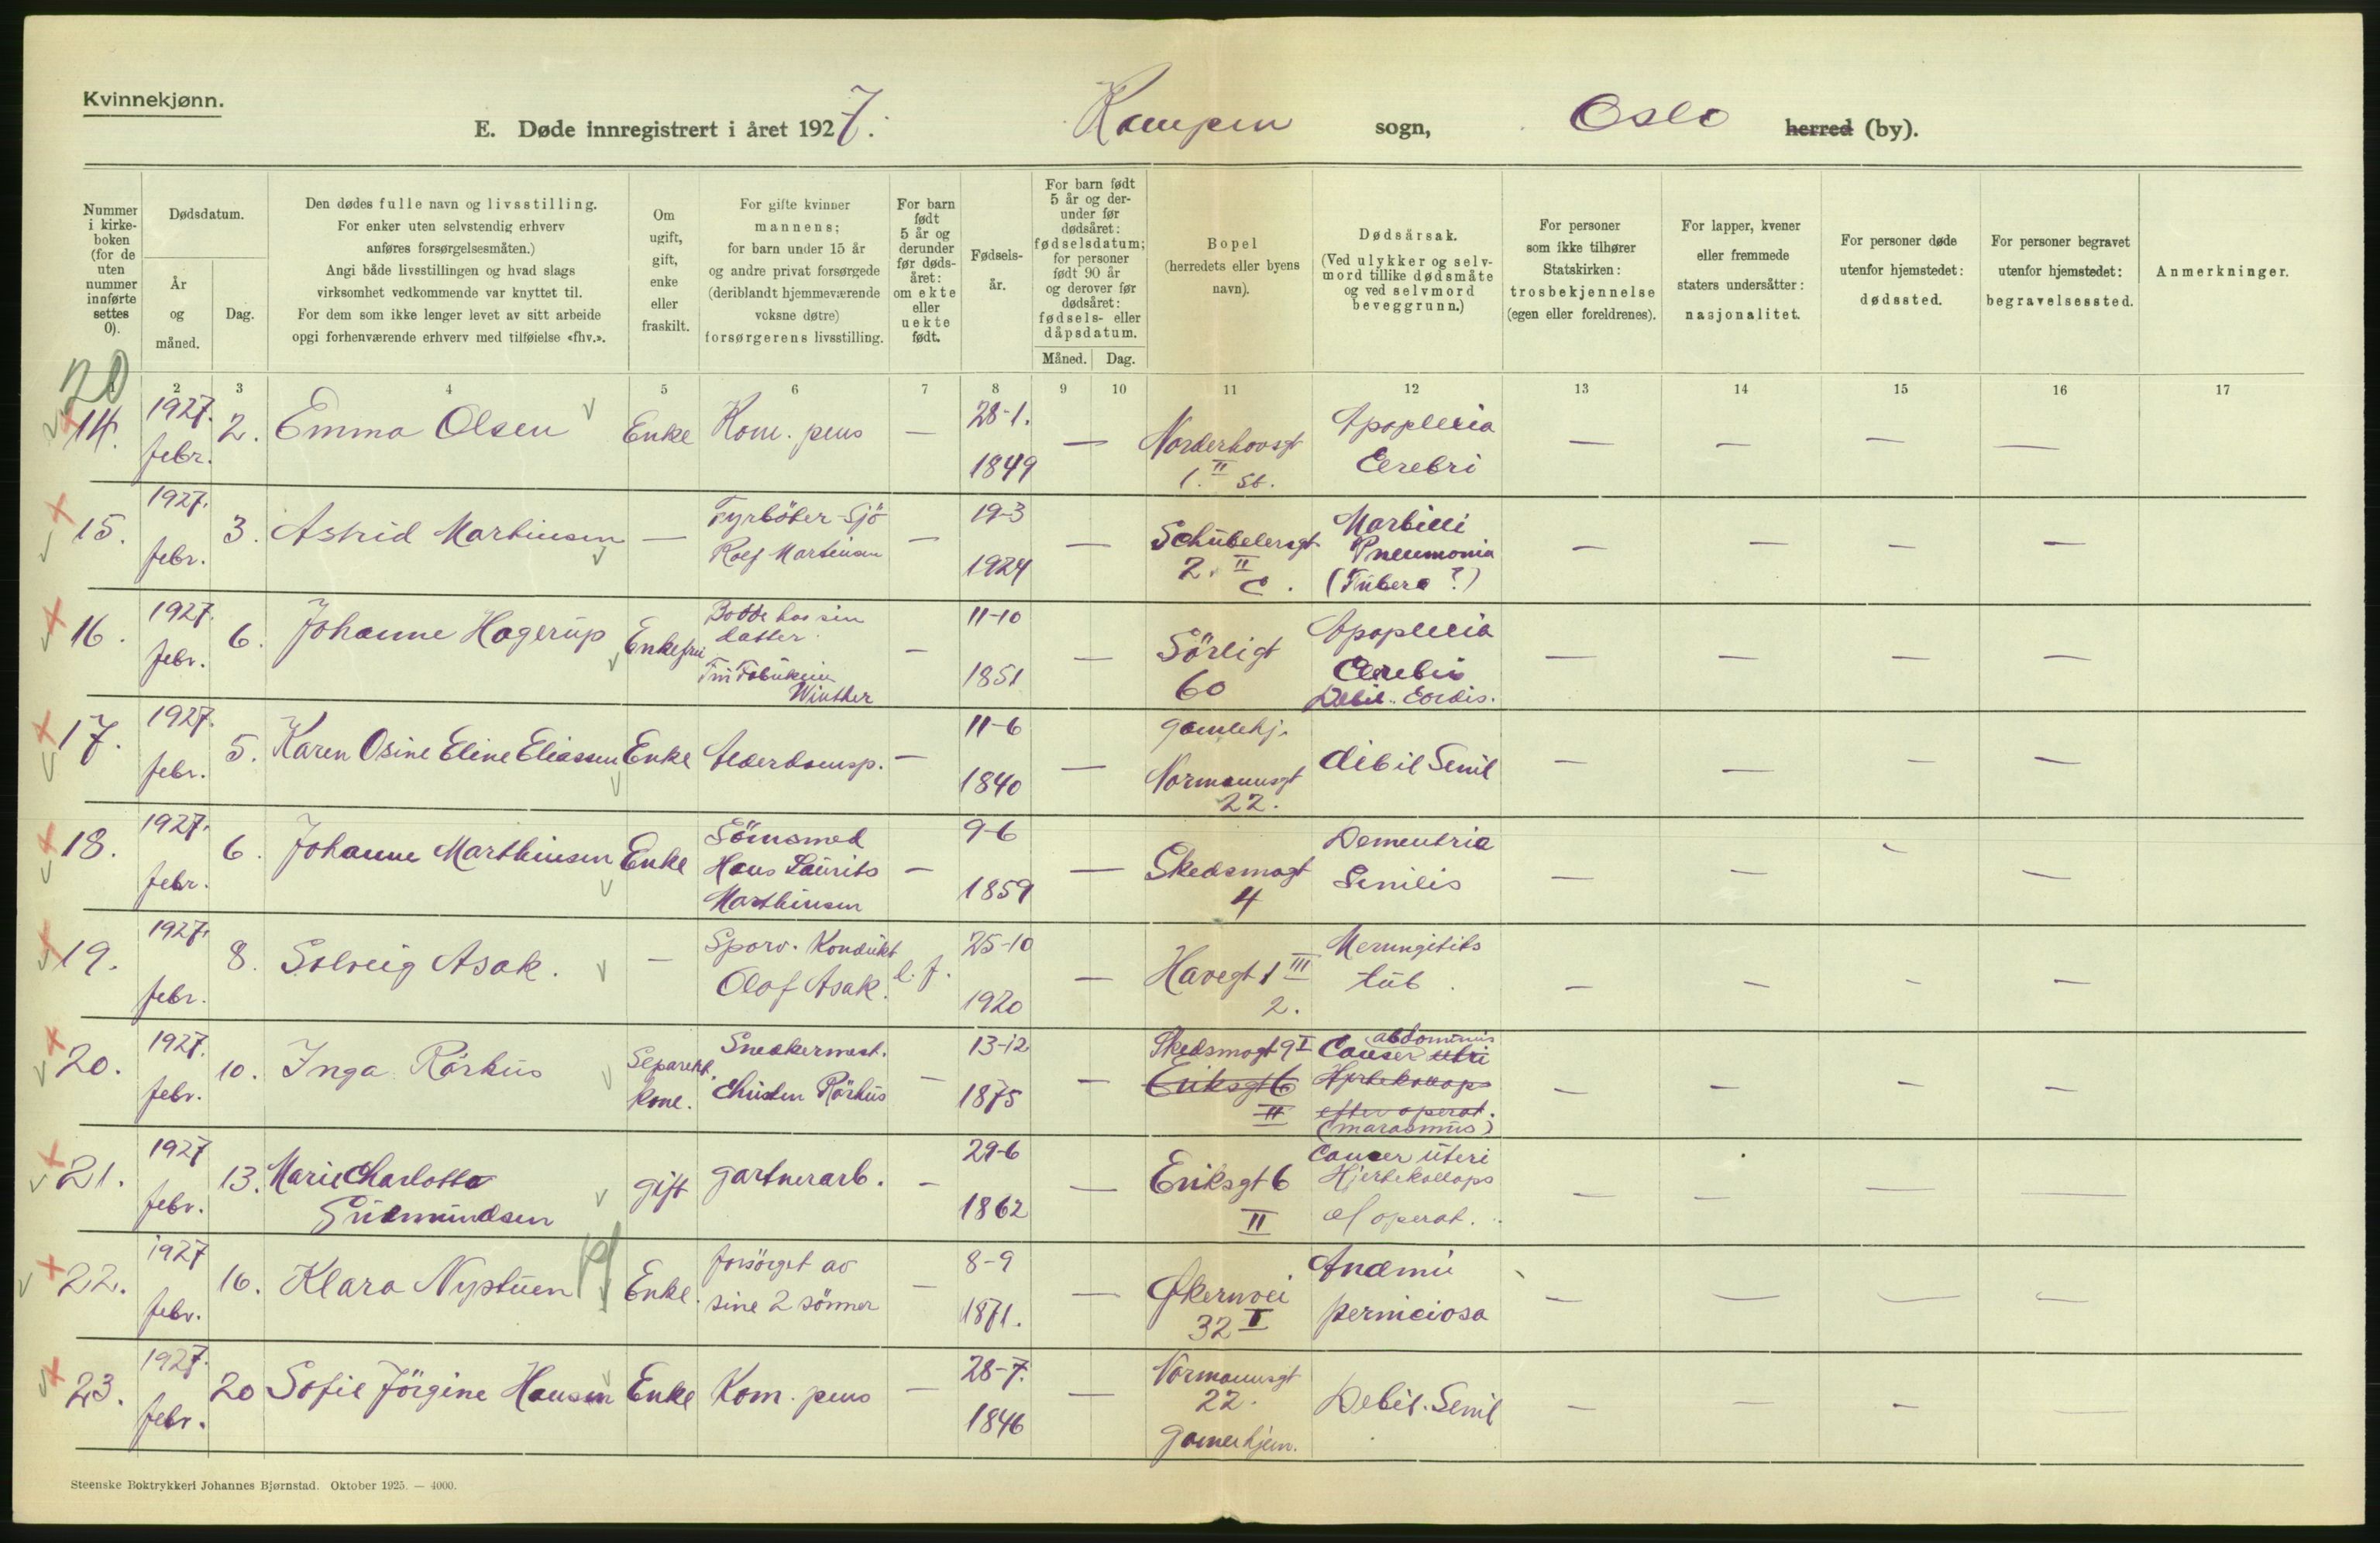 Kvinnekjønn.
E. Døde innregistrert i året 1927. Kampen sogn, Oslo herred (by).
Nummer i kirkeboken (for de uten nummer innførte settes 0).
Dødsdatum.
År og måned.
Dag.
Den dødes fulle navn og livsstilling.
For enker uten selvstendig erhverv
anføres forsørgelsesmåten.)
Angi både livsstillingen og hvad slags
virksomhet vedkommende var knyttet til.
For dem som ikke lenger levet av sitt arbeide
opgi forhenværende erhverv med tilføielse «fhv.».
Om ugift, gift, enke eller fraskilt.
For gifte kvinner
mannens;
for barn under 15 år
og andre privat forsørgede
(deriblandt hjemmeværende
voksne døtre)
forsørgerens livsstilling.
For barn født 5 år og derunder før dødsåret: om ekte eller uekte født.
Fødselsår.
For barn født 5 år og derunder før dødsåret: fødselsdatum; for personer født 90 år og derover før dødsåret: fødsels- eller dåpsdatum.
Måned. Dag.
Bopel
(herredets eller byens
navn).
Dødsårsak.
(Ved ulykker og selvmord tillike dødsmåte og ved selvmord beveggrunn.)
For personer
som ikke tilhører
Statskirken:
trosbekjennelse
(egen eller foreldrenes).
For lapper, kvener
eller fremmede
staters undersåtter:
nasjonalitet.
For personer døde
utenfor hjemstedet:
dødssted.
For personer begravet
utenfor hjemstedet:
begravelsessted.
Anmerkninger.
20
1 2 3 4 5 6 7 8 9 10 11 12 13 14 15 16 17
14. 1927. febr. 2. Emma Olsen Enke Kom. pens — 28-1. 1849 — Norderhovsgt 1. II st. Apoplexia Cerebri — — — —
15. 1927. febr. 3. Astrid Martinsen — Fyrböter-Sjö Rolf Martinsen — 19-3 1924 — Schübelersgt 2. II C. Morbilli Pneumonia (Tubero?) — — — —
16. 1927. febr. 6. Johanne Hagerup Enkefru Bodde hos sin datter. Winther — 11-10 1851 — Sörligt 60 Apoplexia Cerebri Debil. Cordis. — — — —
17. 1927. febr. 5. Karen Osine Eline Eliassen Enke Alderdomsp. — 11-6 1840 — Gamlehj. Normannsgt 22. debil Senil — — — —
18. 1927. febr. 6. Johanne Marthinsen Enke Sömsmed Hans Laurits Marthinsen — 9-6 1859 — Skedsmogt 4 Dementria Senilis — — — —
19. 1927. febr. 8. Solveig Asak. — Sporv. Kondukt Olof Asak. e. f. 25-10 1920 — Havegt 1 III 2. Meningitits tub. — — — —
20. 1927. febr. 10. Inga Rörhus Separert kone. Snedkermest. Christen Rörhus — 13-12 1875 — Skedsmogt 9 I Eriksgt 6 II Cancer uteri abdominis Hjertekollaps efter operat. (marasmus) — — — —
21. 1927 febr. 13. Marie Charlotte Gudmundsen gift gartnerarb. — 29-6 1862 — Eriksgt 6 II Cancer uteri Hjertekollaps operat. — — — —
22. 1927 febr. 16. Klara Nystuen Enke. forsörget av sine 2 sönner — 8-9 1871. — Økernvei 32 I Anæmi perniciosa — — — —
23. 1927. febr. 20 Sofie Jörgine Hansen Enke Kom. pens — 28-7. 1846 — Normannsgt 22. Gamlehjem. Debil. Senil — — — —
Steenske Boktrykkeri Johannes Bjørnstad. Oktober 1925. — 4000.